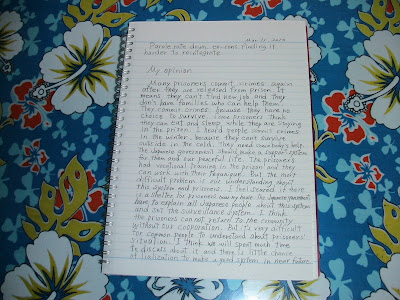 Mar 15 2010
Parole rate down, ex-cons finding it
harder to reintegrate
My opinion
Many prisoners commit crimes again
after they are released from prison. It
means they can't find new job and they
don't have families who can help them.
They commit crimes because they have no
choice to survive. Some prisoners think
they can eat and sleep while they are staying
in the prison. I heard people commit crimes
in the winter because they can't survive
outside in the cold. They need somebody's help.
The Japanese government should make a support system
for them and our peaceful life. The prisoners
had vocational training in the prison and they
can work with their technique. But the most
difficult problem is our understanding about
this system and prisoners. I feel scared if there
is a shelter for prisoners near my house. The Japanese government
have to explain all Japanese people about this system
and set the surveillance system. I think
the prisoners can not return to the community
without our cooperation. But it's very difficult
for common people to understand about prisoners'
situation. I think we will spent much time
to discuss about it and there is little chance
of realization to make a good system in near future.